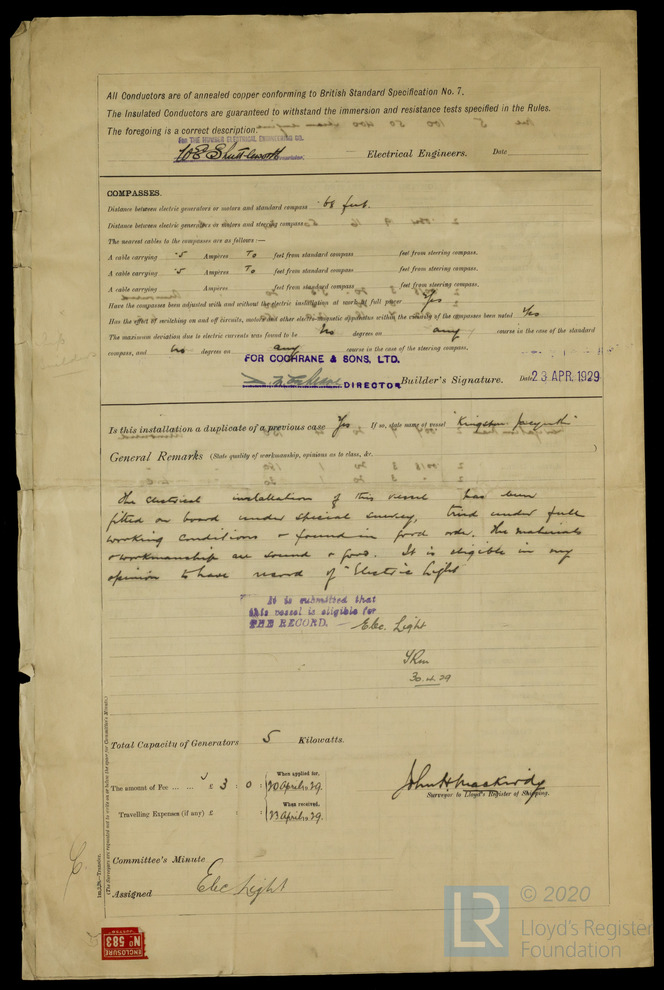 All Conductors are of annealed copper conforming to British Standard Specification No. 7.
The Insulated Conductors are guaranteed to withstand the immersion and resistance tests specified in the Rules.
The foregoing is a correct description.
FOR THE HUMBER ELECTRICAL ENGINEERING CO.
W E Shuttleworth Electrical Engineers. Date
COMPASSES.
Distance between electric generators or motors and standard compass 68 feet.
Distance between electric generators or motors and steering compass
The nearest cables to the compasses are as follows :—
A cable carrying ·5 Ampères To feet from standard compass feet from steering compass.
A cable carrying ·5 Ampères To feet from standard compass feet from steering compass.
A cable carrying Ampères feet from standard compass feet from steering compass.
Have the compasses been adjusted with and without the electric installation at work at full power Yes
Has the effect of switching on and off circuits, motors and other electro-magnetic apparatus within the vicinity of the compasses been noted Yes
The maximum deviation due to electric currents was found to be No degrees on any course in the case of the standard
compass, and No degrees on any course in the case of the steering compass.
FOR COCHRANE & SONS, LTD.
DIRECTOR Builder's Signature. Date 23 APR. 1929
Is this installation a duplicate of a previous case Yes If so, state name of vessel "Kingston Jacynth"
General Remarks (State quality of workmanship, opinions as to class, &c.
)
The electrical installation of this vessel has been
fitted on board under special survey, tried under full
working conditions & found in good order. The materials
& workmanship are sound & good. It is eligible in my
opinion to have record of "Electric Light"
It is submitted that
this vessel is eligible for
THE RECORD. — Elec. Light
30.4.29
Total Capacity of Generators 5 Kilowatts.
The amount of Fee ... ... £ 3 : 0 : When applied for, 20 April 1929.
Travelling Expenses (if any) £ : : When received, 23 April 1929.
John H Mackirdy
Surveyor to Lloyd's Register of Shipping.
Committee's Minute
Assigned Elec Light
(The Surveyors are requested not to write on or below the space for Committee's Minute.)
ENCLOSURE
No 583
LR © 2020
Lloyd's Register
Foundation